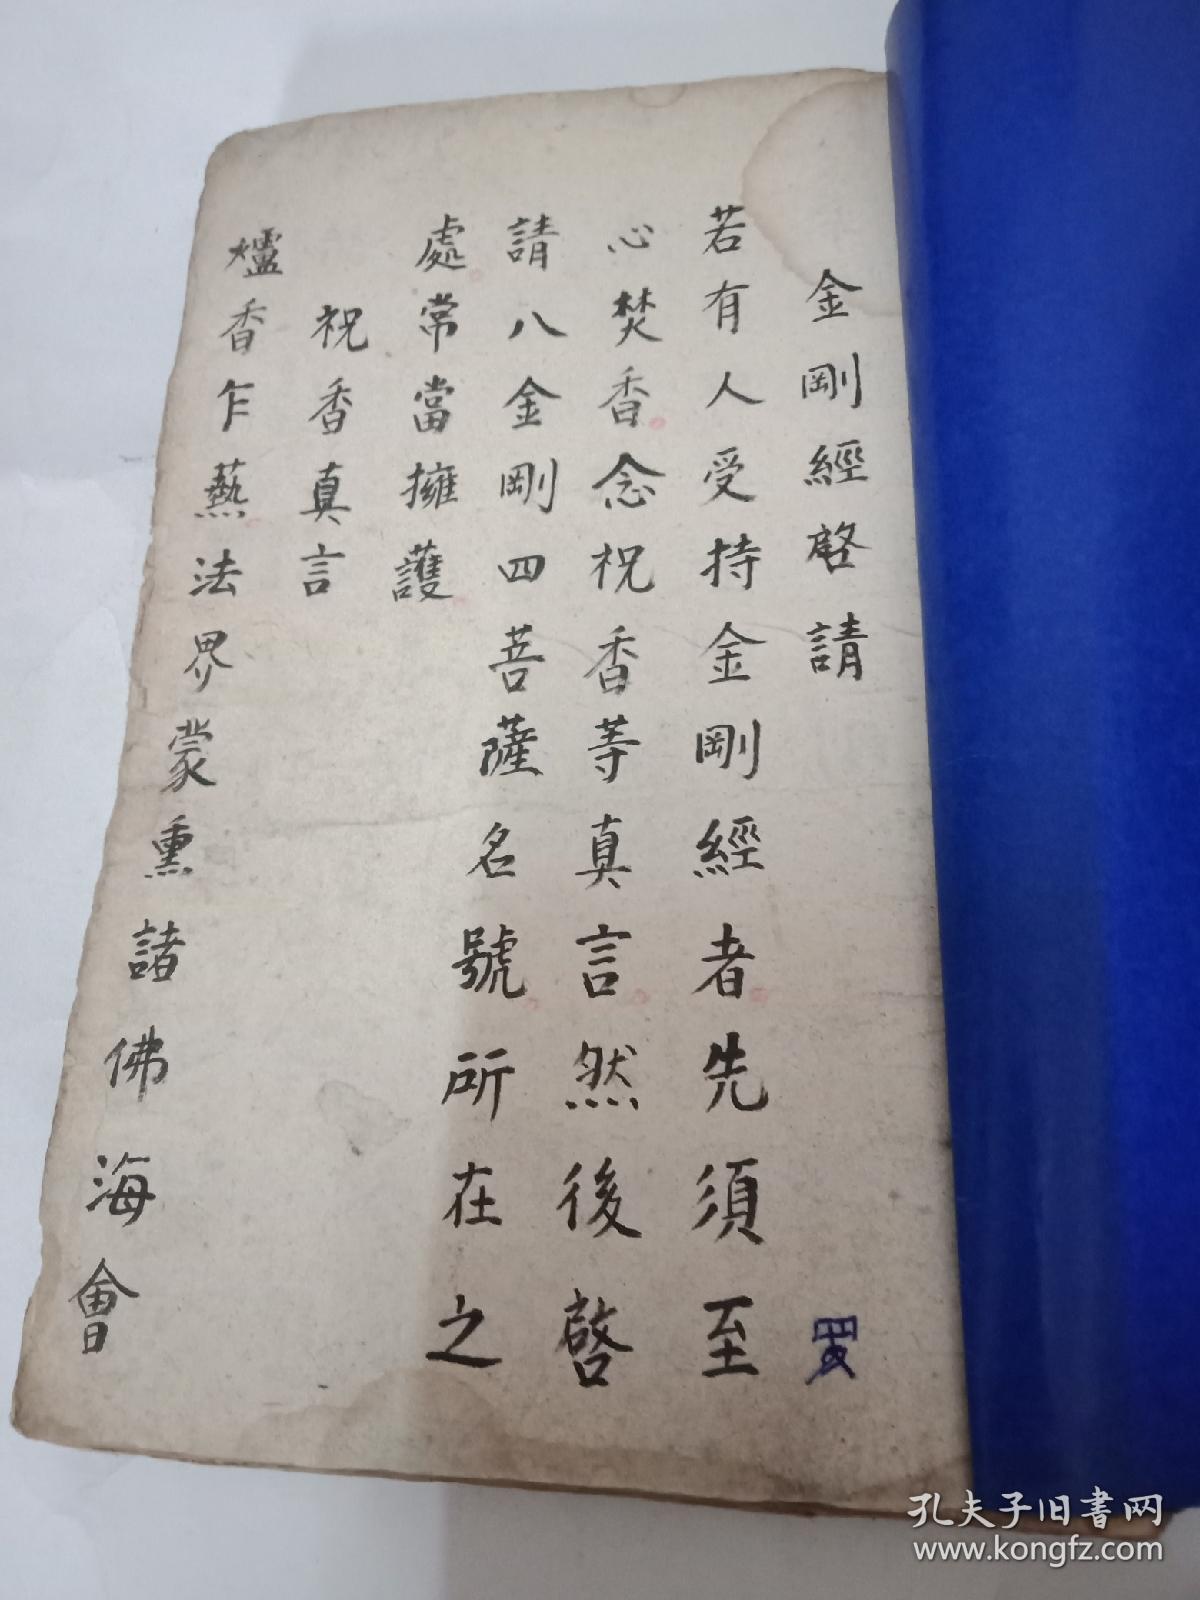 金剛經啓請
若有人受持金剛經者先須至
心焚香念祝香等真言然後啓
請八金剛四菩薩名號所在之
處常當擁護
祝香真言
爐香乍爇法界蒙熏諸佛海會
孔夫子旧書网
www.kongfz.com